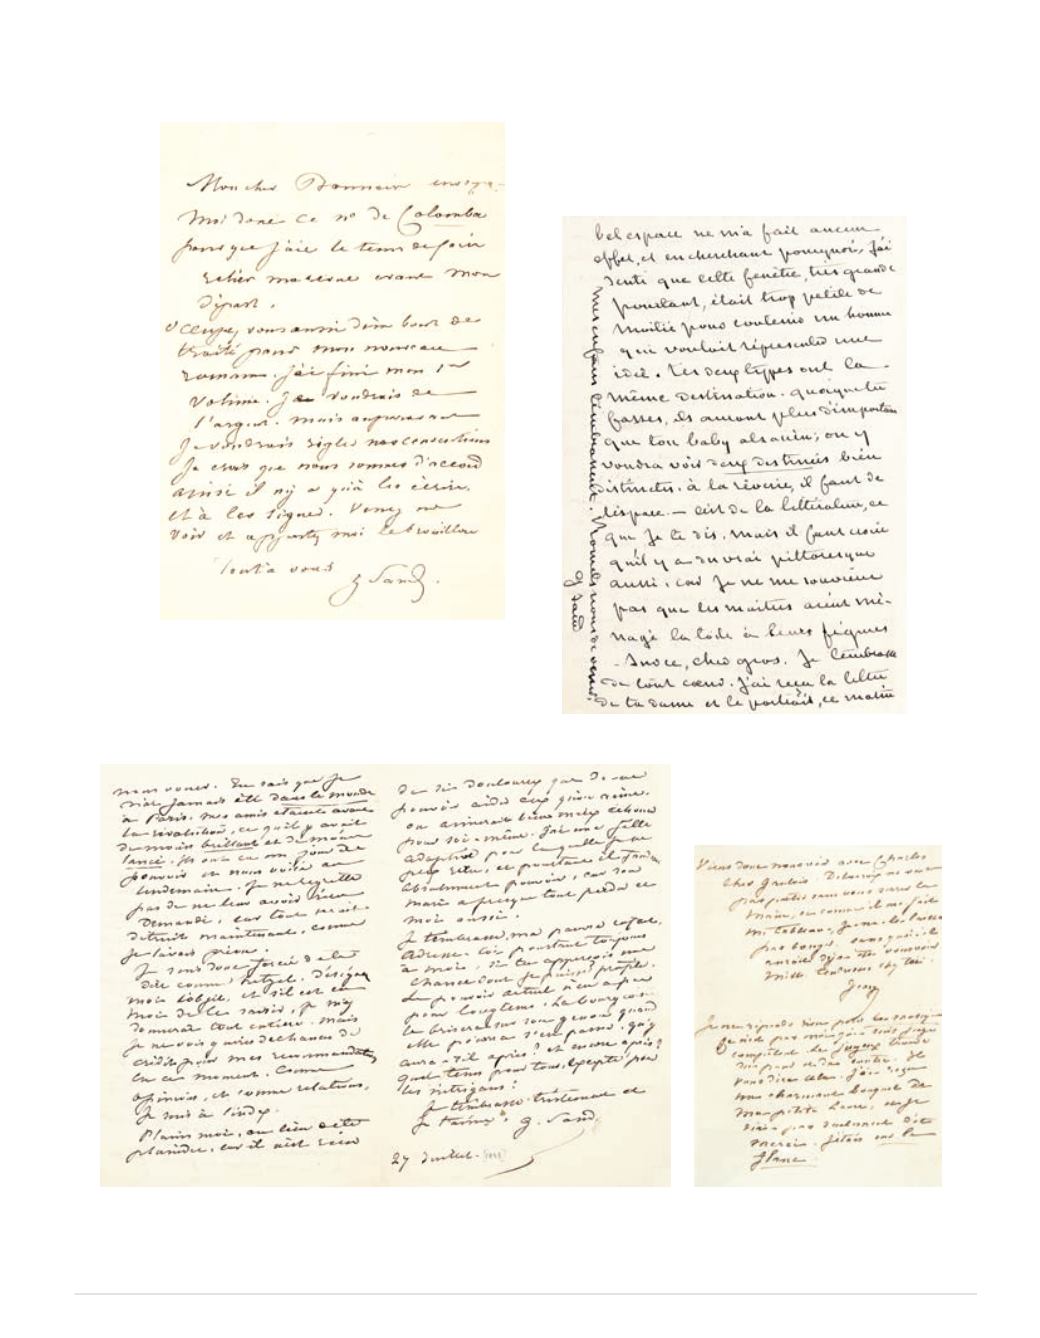 Mon cher Bonnaire envoyez-
moi donc ce nº de Colomba
pour que j'aie le tems de faire
relier ma revue avant mon
départ.
occupez vous aussi d'un bout de
traité pour mon nouveau
roman. j'ai fini mon 1er
volume. Je voudrais de
l'argent. mais auparavant
Je voudrais régler nos conventions
Je crois que nous sommes d'accord
ainsi il n'y a qu'à les écrire.
et à les signer. Venez me
voir et apportez moi le brouillon
Tout à vous
G Sand.
bel espace ne m'a fait aucun
effet, et en cherchant pourquoi, j'ai
senti que cette fenêtre, très grande
pourtant, était trop petite de
moitié pour contenir un homme
qui voulait représenter une
idée. Tes deux types ont la
même destination. quoique tu
fasses, ils auront plus d'importance
que ton baby alsacien; on y
voudra voir deux destinées bien
distinctes. à la rêverie, il faut de
l'espace. — c'est de la littérature, ce
que je te dis. mais il faut croire
qu'il y a du vrai pittoresque
aussi, car je ne me souviens
pas que les maîtres aient mé-
nagé la toile à leurs figures
- Sur ce, cher gros. Je t'embrasse
de tout cœur. J'ai reçu la lettre
de ta dame et le portrait, ce matin
Mes enfans t'embrassent. Promets nous de venir.
G Sand
nous voues. Tu sais que je
n'ai jamais été dans le monde
à Paris. mes amis étaient avant
la révolution, ce qu'il y avait
de moins brillant et de moins
lancé. ils ont eu un jour de
pouvoir et nous voilà au
lendemain. Je ne regrette
pas de ne leur avoir rien
demandé, car tout serait
détruit maintenant, comme
je l'avais prévu.
Je suis donc forcée de te
dire comme Hetzel. Désigne
moi l'objet, et s'il est en
moi de le saisir, je m'y
donnerai tout entière. mais
Je ne vois guères de chances de
crédit pour mes recommandations
en ce moment. Comme
opinions, et comme relations,
Je suis à l'index.
Plains moi, au lieu de te
plaindre, car il n'est rien
de si douloureux que de ne
pouvoir aider ceux qu'on aime.
on aimerait bien mieux échouer
pour soi-même. J'ai une fille
adoptive pour laquelle je ne
peux rien, et pourtant il faudrait
absolument pouvoir, car son
mari a presque tout perdu et
moi aussi.
Je t'embrasse, ma pauvre
adresse-toi pourtant toujours
à moi, si tu apperçois une
chance dont je puisse profiter.
Le pouvoir actuel n'en a pas
pour longtems. La bourgeoisie
le brisera sur son genou quand
elle pourra s'en passer. qu'y
aura-t-il après? et encore après?
quel tems pour tous, excepté pour
les intrigans!
Je t'embrasse tristement et
Je t'aime. G. Sand
27 Juillet.
Viens donc nous voir avec Charles
cher Gaulois. Delacroix ne veut
pas partir sans vous serrer la
main, et comme il me fait
un tableau, je ne le laisse
pas bouger. sans quoi, il
aurait déjà été vous voir
mille tendresses chez toi.
George
Je ne réponds rien pour les
Ce n'est pas moi qui suis juge
compétent. Le Joyeux
vous dira cela. J'ai reçu
un charmant bouquet de
ma petite Laure, et je
n'ai pas seulement dit
merci. j'étais sur le
flanc.